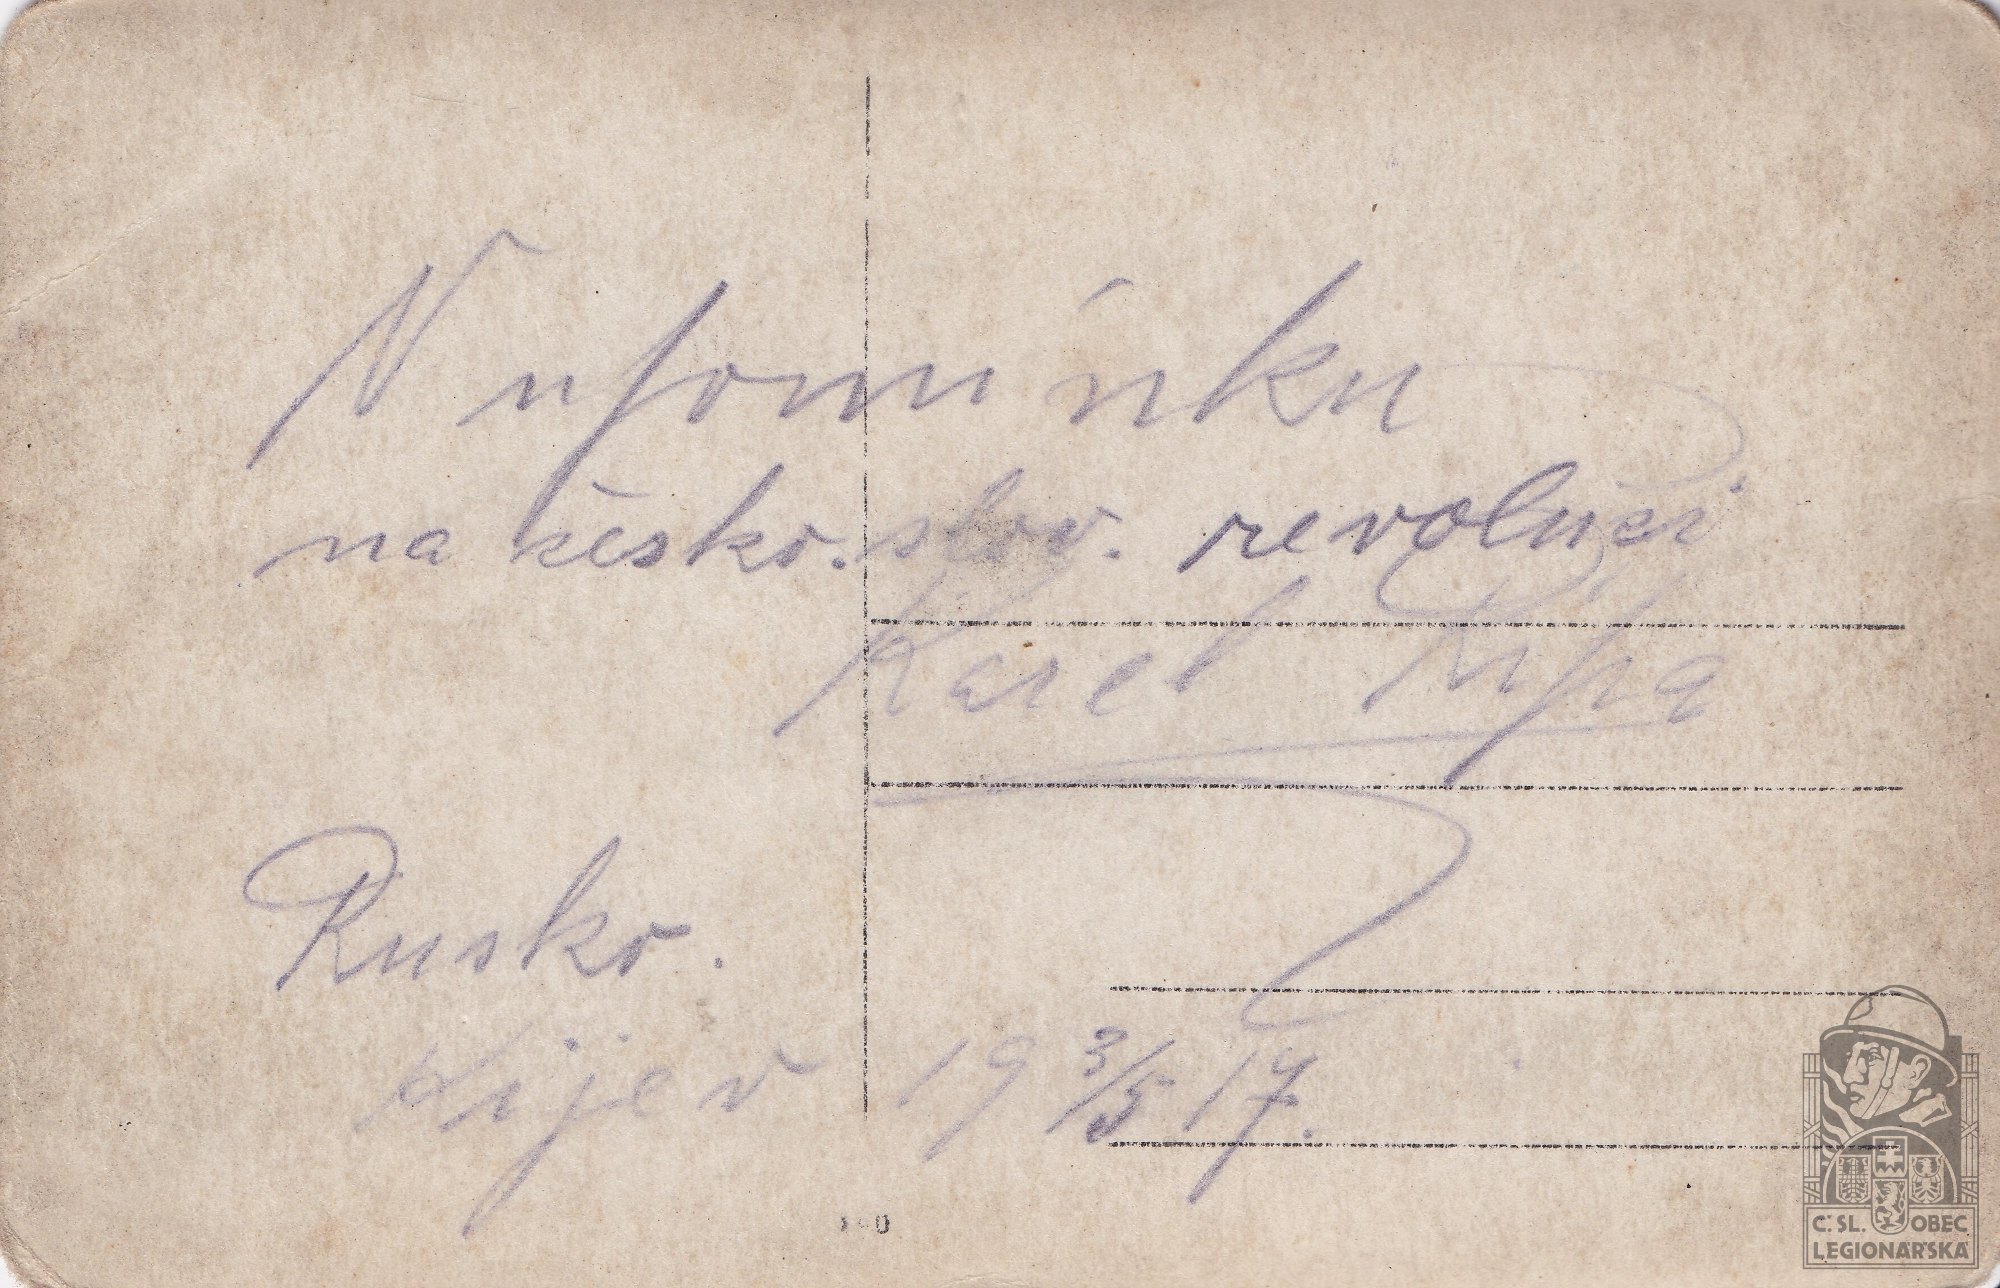 V upomínku
na česko.slov. revoluci
Karel Řípa
Rusko.
Kijev 19 3/5 17.
Č. SL. OBEC
LEGIONÁŘSKÁ